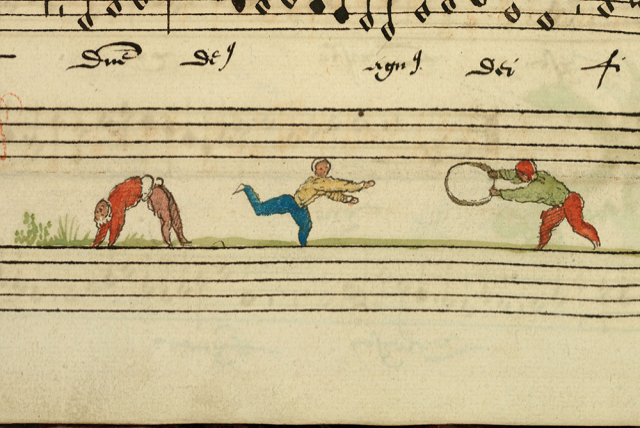 Dn̄e deꝯ agnꝯ dei fi